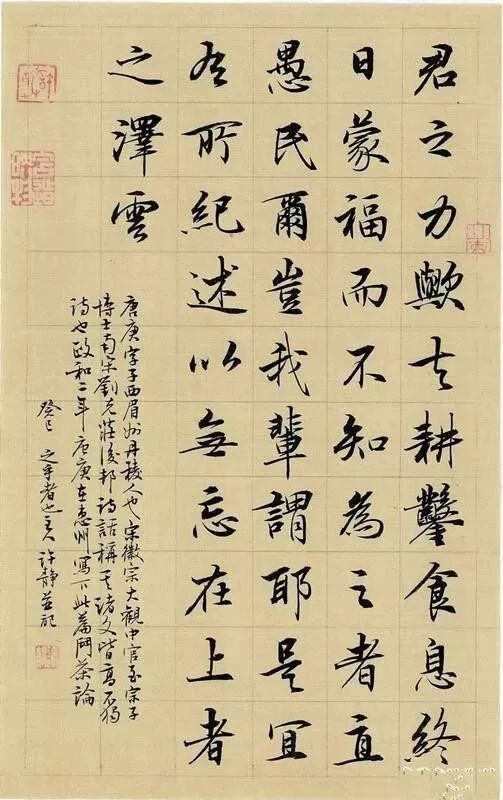 君之力歟夫耕鑿食息終
日蒙福而不知為之者直
愚民爾豈我輩謂耶是宜
有所紀述以無忘在上者
之澤雲
唐庚字子西眉州丹稜人也宋徽宗大觀中官至宗子
博士南宋劉克莊後村詩話稱其諸文皆高不獨
詩也政和二年唐庚在惠州寫下此篇鬥茶論
癸巳 之乎者也主人許靜並記